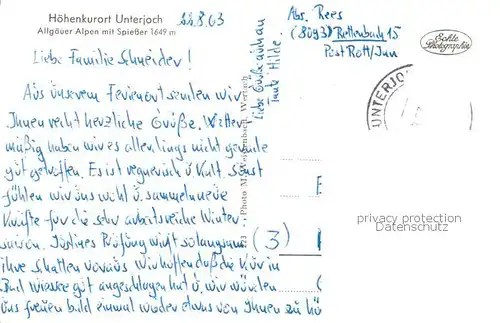 Höhenkurort Unterjoch
Allgäuer Alpen mit Spießer 1649 m
22.8.63
Liebe Familie Schneider!
Aus unserem Ferienort senden wir
Ihnen recht herzliche Grüße. Wetter
mäßig haben wir es allerdings nicht gerade
gut getroffen. Es ist regnerisch u. kalt. Sonst
fühlen wir uns wohl u. sammeln neue
Kräfte für die sehr arbeitsreiche Winter
saison. Prüfung wirft solangsam
ihre Schatten voraus. Wir hoffen daß die Kur in
Bad Wiessee gut angeschlagen hat u. wir würden
uns freuen bald einmal wieder etwas von Ihnen zu hö
Liebe Grüße auch an
Tante Hilde.
Abs. Rees
(8093) Rettenbach 15
Post Rott/Inn
Echte
Photographie
UNTERJO
Photo M. Weißenbach, Wertach
(3)
privacy protection
Datenschutz